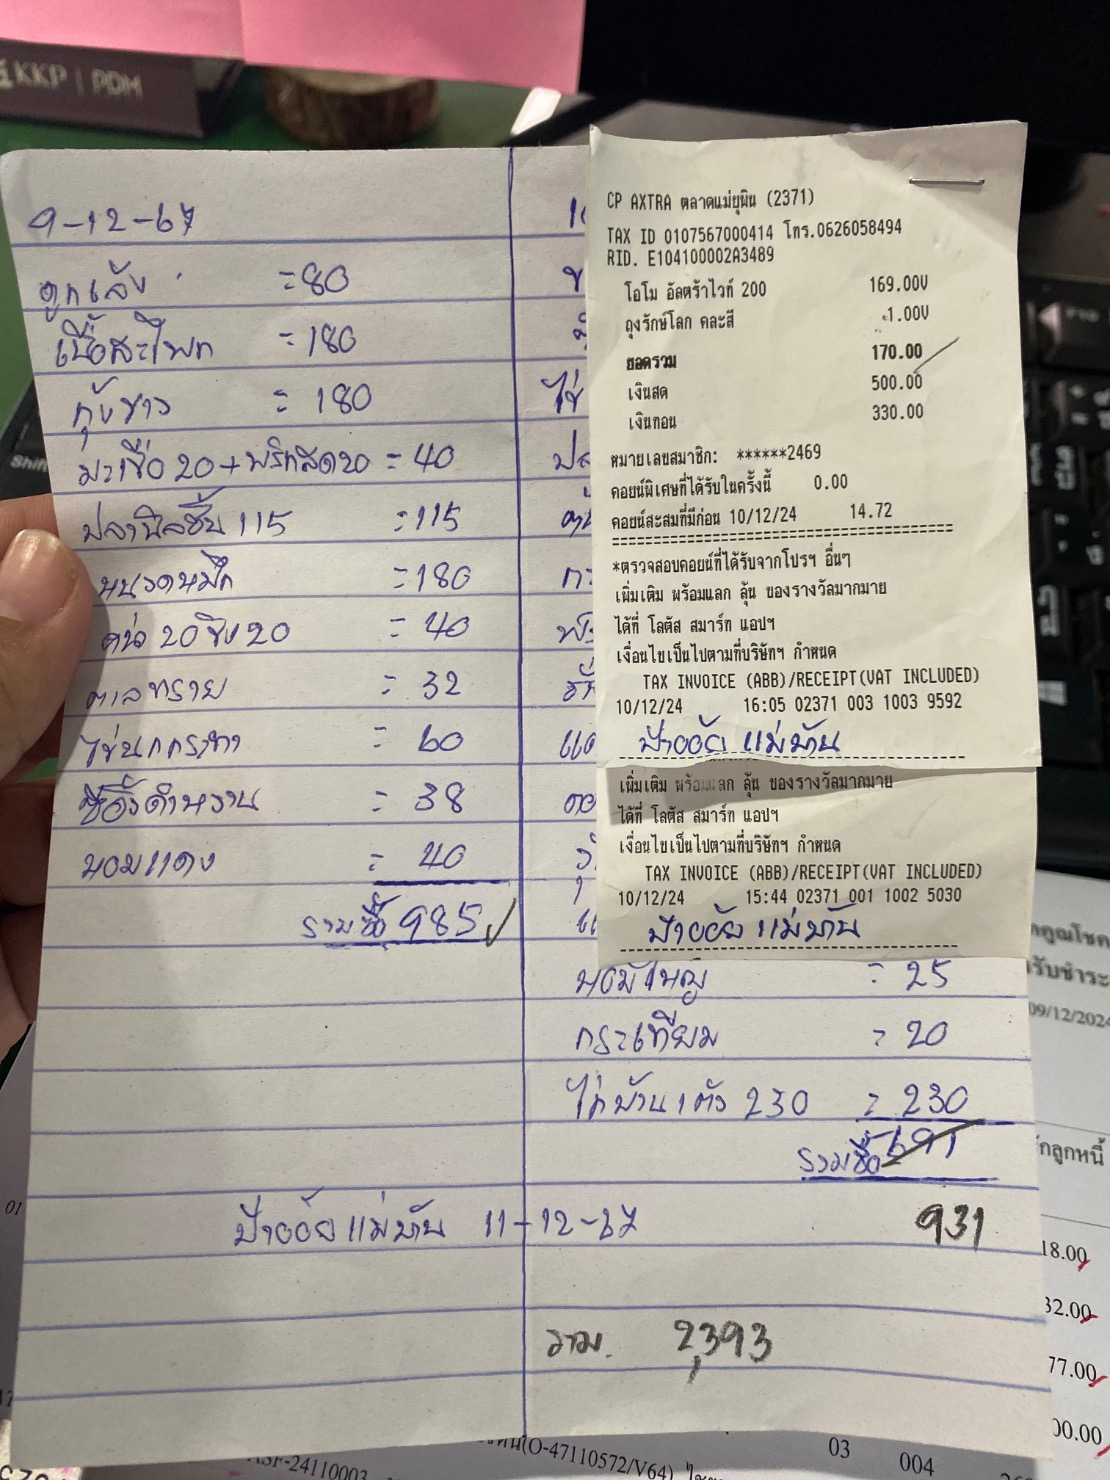 KKP | PDM
9-12-67
ดูกเล้ง = 80
เนื้อสะโพก = 180
กุ้งขาว = 180
มะเขือ 20 + พริกสด 20 = 40
ปลานิลชิ้น 115 = 115
หนวดหมึก = 180
คน่า 20 ขิง 20 = 40
ตาลทราย = 32
ไข่นกกระทา = 60
ซีอิ้วดำหวาน = 38
หอมแดง = 40
รวมซื้อ 985
CP AXTRA ตลาดแม่ยุพิน (2371)
TAX ID 0107567000414 โทร.0626058494
RID. E104100002A3489
โอโม อัลตร้าไวท์ 200 169.00V
ถุงรักษ์โลก คละสี 1.00V
ยอดรวม 170.00
เงินสด 500.00
เงินทอน 330.00
หมายเลขสมาชิก: ******2469
คอยน์พิเศษที่ได้รับในครั้งนี้ 0.00
คอยน์สะสมที่มีก่อน 10/12/24 14.72
*ตรวจสอบคอยน์ที่ได้รับจากโปรฯ อื่นๆ
เพิ่มเติม พร้อมแลก ลุ้น ของรางวัลมากมาย
ได้ที่ โลตัส สมาร์ท แอปฯ
เงื่อนไขเป็นไปตามที่บริษัทฯ กำหนด
TAX INVOICE (ABB)/RECEIPT(VAT INCLUDED)
10/12/24 16:05 02371 003 1003 9592
ป้าอ้อย แม่บ้าน
เพิ่มเติม พร้อมแลก ลุ้น ของรางวัลมากมาย
ได้ที่ โลตัส สมาร์ท แอปฯ
เงื่อนไขเป็นไปตามที่บริษัทฯ กำหนด
TAX INVOICE (ABB)/RECEIPT(VAT INCLUDED)
10/12/24 15:44 02371 001 1002 5030
ป้าอ้อย แม่บ้าน
หอมใหญ่ = 25
กระเทียม = 20
ไก่บ้าน 1 ตัว 230 = 230
รวมซื้อ 691
ป้าอ้อย แม่บ้าน 11-12-67 931
รวม. 2,393
09/12/2024
18.00
32.00
77.00
00.00
(O-47110572/V64)
03 004